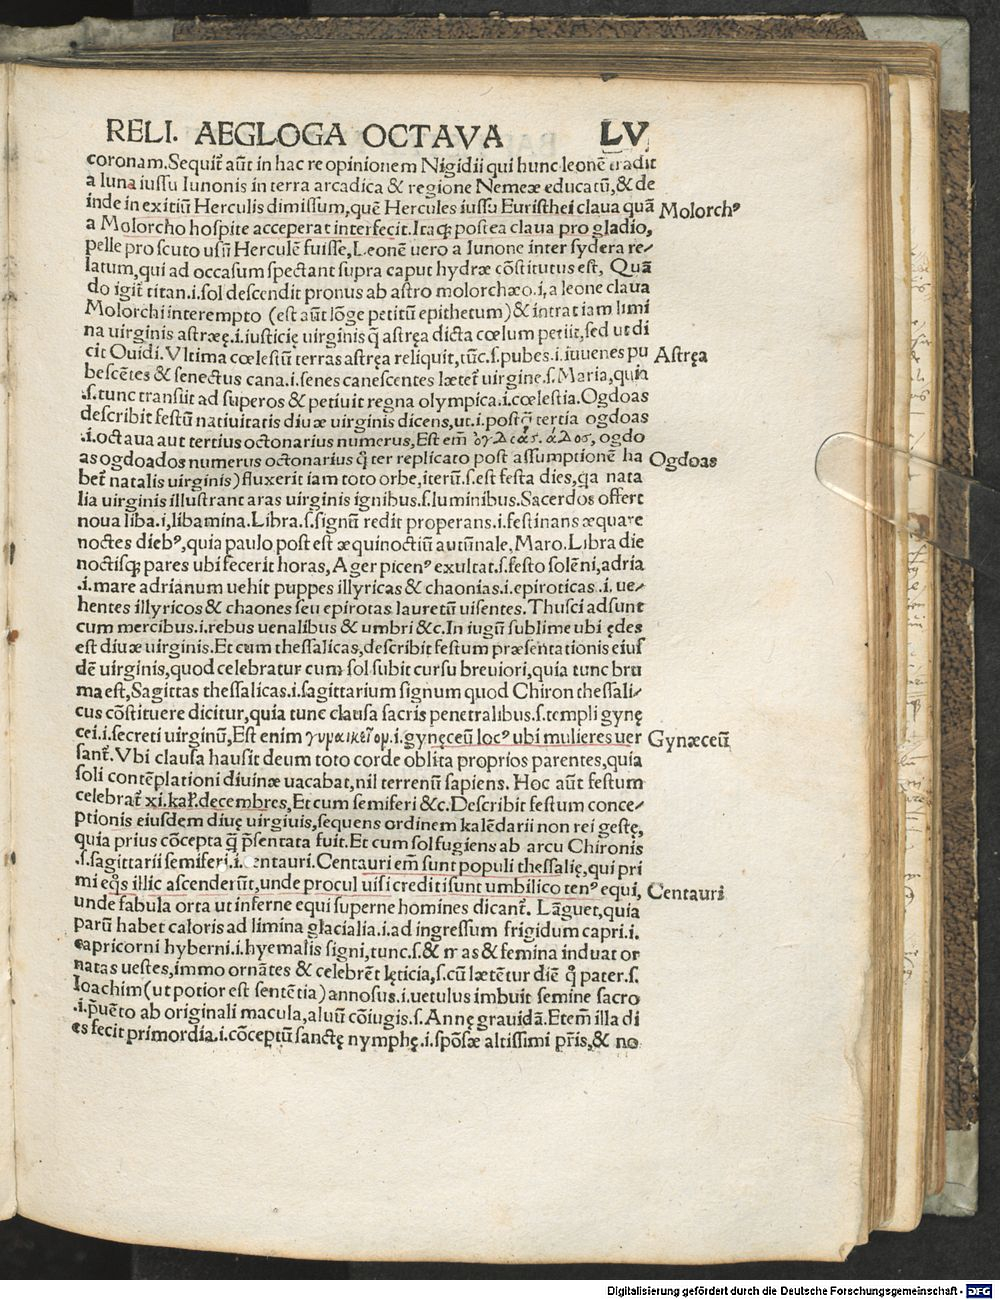 RELI. AEGLOGA OCTAVA LV
coronam.Sequit̃ aũt in hac re opinionem Nigidii qui hunc leonẽ tradit
a luna iussu Iunonis in terra arcadica & regione Nemeæ educatũ,& de
inde in exitiũ Herculis dimissum,quẽ Hercules iussu Euristhei claua quã Molorchꝰ
a Molorcho hospite acceperat interfecit.Itaqꝫ postea claua pro gladio,
pelle pro scuto usũ Herculẽ fuisse,Leonẽ uero a Iunone inter sydera re-
latum,qui ad occasum spectant supra caput hydræ cõstitutus est, Quã
do igit̃ titan.i.sol descendit pronus ab astro molorchæo.i,a leone claua
Molorchi interempto (est aũt lõge petitũ epithetum)& intrat iam limi
na uirginis astrææ.i.iusticię uirginis q̃ astręa dicta cœlum petiit,sed ut di
cit Ouidi.Vltima cœlestiũ terras astręa reliquit,tũc.s.pubes.i.iuuenes pu Astręa
bescẽtes & senectus cana.i.senes canescentes lætet̃ uirgine.s.Maria,quia
.s.tunc transiit ad superos & petiuit regna olympica.i.cœlestia.Ogdoas
describit festũ natiuitatis diuæ uirginis dicens,ut.i.postq̃ tertia ogdoas
.i.octaua aut tertius octonarius numerus,Est em̃ ὀγδοάς.άδος, ogdo
as ogdoados numerus octonarius q̃ ter replicato post assumptionẽ ha Ogdoas
bet̃ natalis uirginis)fluxerit iam toto orbe,iterũ.s.est festa dies,q̃a nata
lia uirginis illustrant aras uirginis ignibus.s.luminibus.Sacerdos offert
noua liba.i,libamina.Libra.s.signũ redit properans.i.festinans æquare
noctes diebꝰ,quia paulo post est æquinoctiũ autũnale,Maro.Libra die
noctisqꝫ pares ubi fecerit horas,Ager picenꝰ exultat.s.festo solẽni,adria
.i.mare adrianum uehit puppes illyricas & chaonias.i.epiroticas.i.ue-
hentes illyricos & chaones seu epirotas lauretũ uisentes.Thusci adsunt
cum mercibus.i.rebus uenalibus & umbri &c.In iugũ sublime ubi ędes
est diuæ uirginis.Et cum thessalicas,describit festum præsentationis eius
dẽ uirginis,quod celebratur cum sol subit cursu breuiori,quia tunc bru
ma est,Sagittas thessalicas.i.sagittarium signum quod Chiron thessali-
cus cõstituere dicitur,quia tunc clausa sacris penetralibus.s.templi gynę
cei.i.secreti uirginũ,Est enim γυναικεῖον.i.gynęceũ locꝰ ubi mulieres uer Gynæceũ
sant̃.Vbi clausa hausit deum toto corde oblita proprios parentes,quia
soli contẽplationi diuinæ uacabat,nil terrenũ sapiens. Hoc aũt festum
celebrat̃ xi.kaƚ.decembres,Et cum semiferi &c.Describit festum conce-
ptionis eiusdem diuę uirgiuis,sequens ordinem kalẽdarii non rei gestę,
quia prius cõcepta q̃ p̃sentata fuit.Et cum sol fugiens ab arcu Chironis
.s.sagittarii semiferi.i. entauri.Centauri em̃ sunt populi thessalię,qui pri
mi eq̃s illic ascenderũt,unde procul uisi crediti sunt umbilico tenꝰ equi, Centauri
unde fabula orta ut inferne equi superne homines dicant̃. Lãguet,quia
parũ habet caloris ad limina glacialia.i.ad ingressum frigidum capri.i.
capricorni hyberni.i.hyemalis signi,tunc.s.& mas & femina induat or
natas uestes,immo ornãtes & celebrẽt lęticia,s.cũ lætẽtur diẽ q̃ pater.s.
Ioachim(ut potior est sentẽtia)annosus.i.uetulus imbuit semine sacro
.i.p̃uẽto ab originali macula,aluũ cõiugis.s.Annę grauidã.Etem̃ illa di
es fecit primordia.i.cõceptũ sanctę nymphę.i.spõsæ altissimi pr̃is,& no
Digitalisierung gefördert durch die Deutsche Forschungsgemeinschaft - DFG